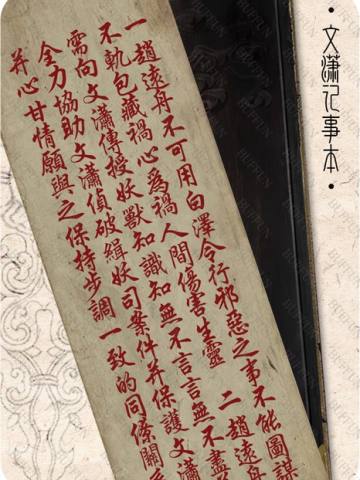 ·文潇记事本·
一趙遠舟不可用白澤令行邪惡之事不能圖謀
不軌包藏禍心為禍人間傷害生靈 二趙遠舟
需向文瀟傳授妖獸知識知無不言言無不盡
全力協助文瀟偵破緝妖司案件并保護文瀟
并心甘情願與之保持步調一致的同僚關